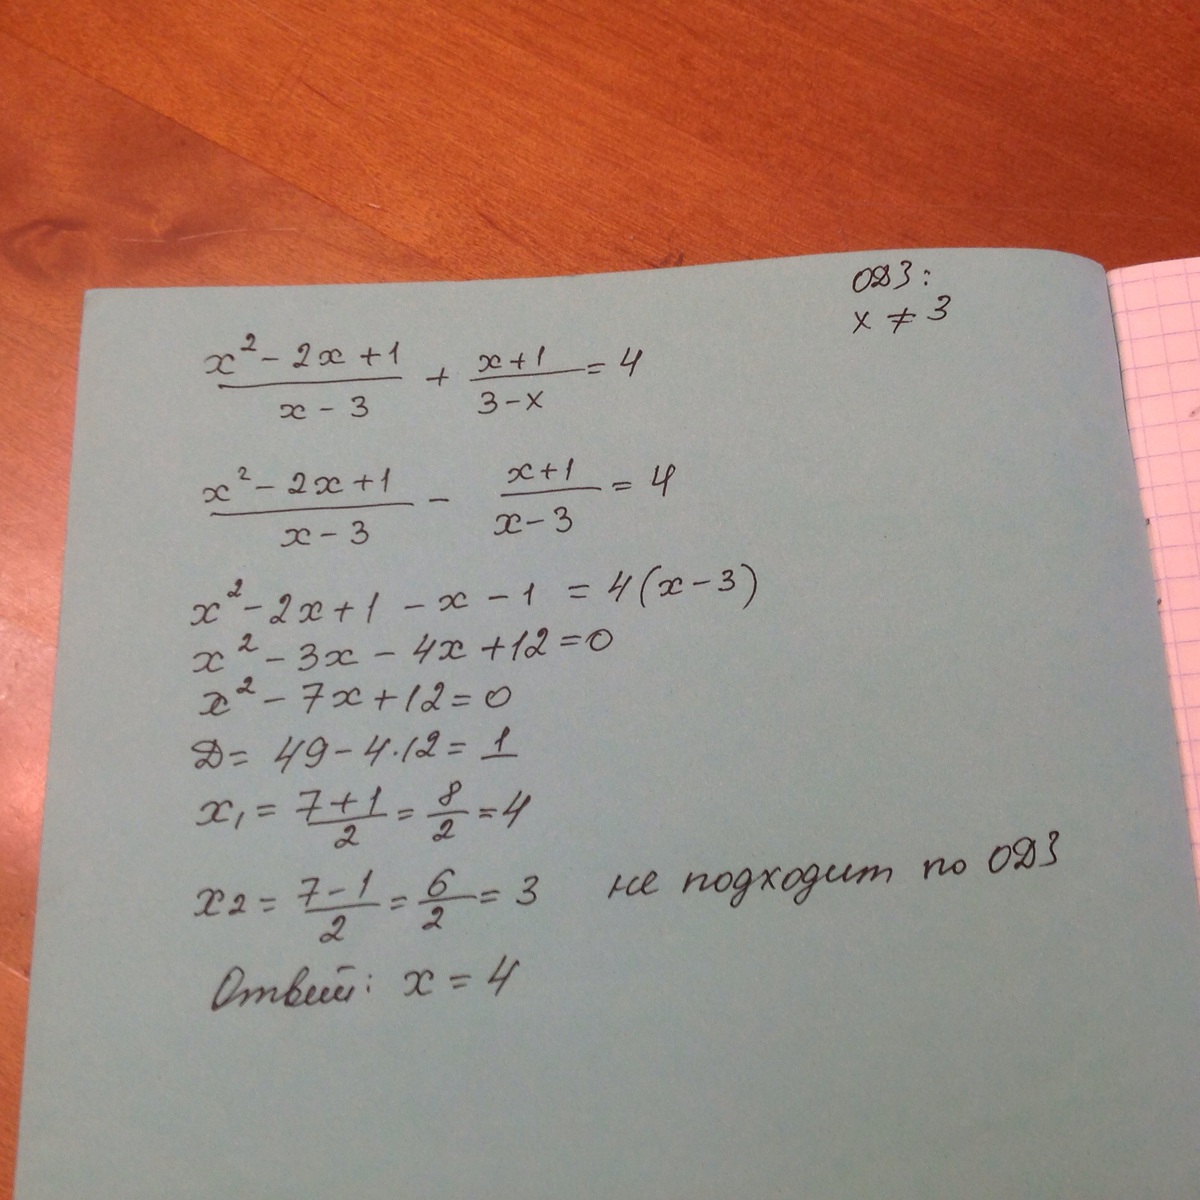 ОДЗ:
x ≠ 3
(x² - 2x + 1)/(x - 3) + (x + 1)/(3 - x) = 4
(x² - 2x + 1)/(x - 3) - (x + 1)/(x - 3) = 4
x² - 2x + 1 - x - 1 = 4(x - 3)
x² - 3x - 4x + 12 = 0
x² - 7x + 12 = 0
Д = 49 - 4·12 = 1
x₁ = (7 + 1)/2 = 8/2 = 4
x₂ = (7 - 1)/2 = 6/2 = 3 не подходит по ОДЗ
Ответ: x = 4